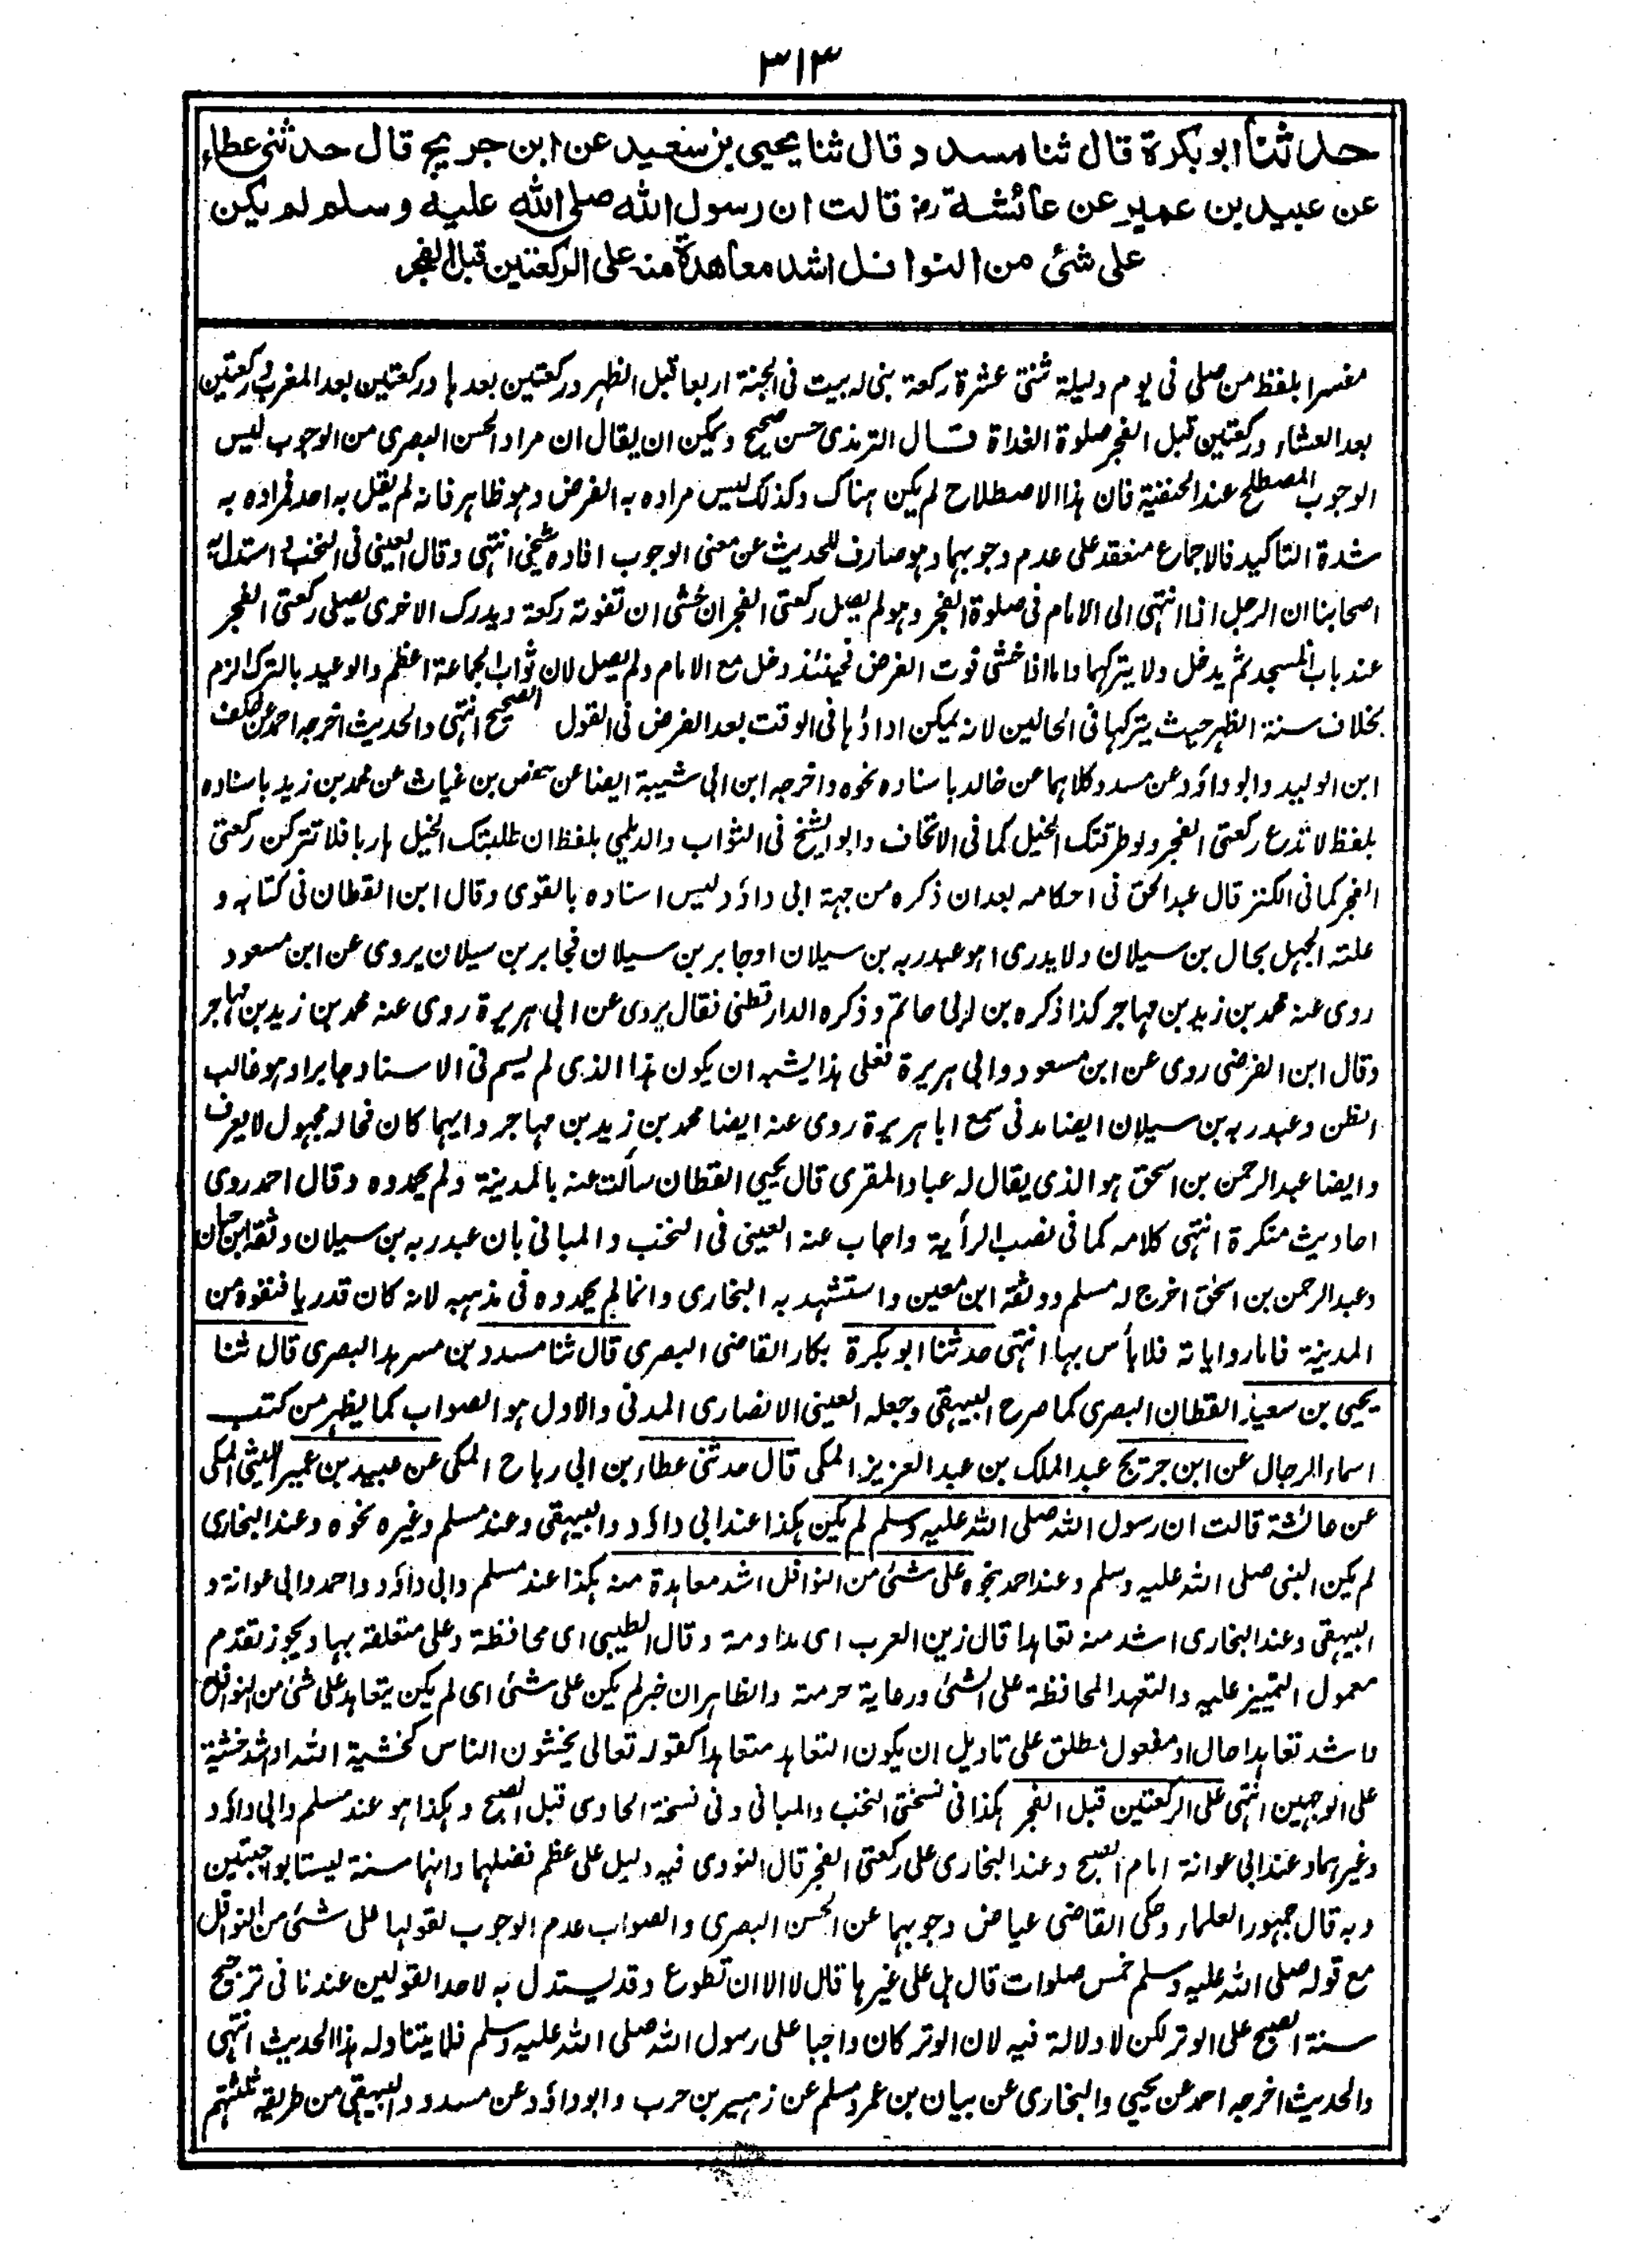 ٣١٣
حدثنا ابو بكرة قال ثنا مسدد قال ثنا يحيى بن سعيد عن ابن جريج قال حدثني عطاء
عن عبيد بن عمير عن عائشة رض قالت ان رسول الله صلى الله عليه وسلم لم يكن
على شئ من النوافل اشد معاهدة منه على الركعتين قبل الفجر
مفسرا بلفظ من صلى فى يوم وليلة ثنتى عشرة ركعة بنى له بيت فى الجنة اربعا قبل الظهر وركعتين بعدها وركعتين بعد المغرب وركعتين
بعد العشاء وركعتين قبل الفجر صلوة الغداة قال الترمذى حسن صحيح ويمكن ان يقال ان مراد الحسن البصرى من الوجوب ليس
الوجوب المصطلح عند الحنفية فان هذا الاصطلاح لم يكن هناك وكذلك ليس مراده به الفرض وهو ظاهر فانه لم يقل به احد فمراده به
شدة التاكيد فالاجماع منعقد على عدم وجوبهما وهو صارف للحديث عن معنى الوجوب افاده شيخى انتهى وقال العينى فى النخب استدل به
اصحابنا ان الرجل اذا انتهى الى الامام فى صلوة الفجر وهو لم يصل ركعتى الفجر ان خشى ان تفوته ركعة ويدرك الاخرى يصلى ركعتى الفجر
عند باب المسجد ثم يدخل ولا يتركهما واما اذا خشى فوت الفرض فحينئذ دخل مع الامام ولم يصل لان ثواب الجماعة اعظم والوعيد بالترك الزم
بخلاف سنة الظهر حيث يتركها فى الحالين لانه يمكن اداؤها فى الوقت بعد الفرض فى القول الصحيح انتهى والحديث اخرجه احمد عن خلف
ابن الوليد وابو داؤد عن مسدد كلاهما عن خالد باسناده نحوه واخرجه ابن ابى شيبة ايضا عن حفص بن غياث عن محمد بن زيد باسناده
بلفظ لا تدع ركعتى الفجر ولو طرقتك الخيل كما فى الاتحاف وابو الشيخ فى الثواب والديلمى بلفظ ان طلبتك الخيل هاربا فلا تتركن ركعتى
الفجر كما فى الكنز قال عبد الحق فى احكامه بعد ان ذكره من جهة ابى داؤد ليس اسناده بالقوى وقال ابن القطان فى كتابه و
علته الجهل بحال بن سيلان ولا يدرى اهو عبد ربه بن سيلان او جابر بن سيلان فجابر بن سيلان يروى عن ابن مسعود
روى عنه محمد بن زيد بن مهاجر كذا ذكره بن ابى حاتم وذكره الدارقطنى فقال يروى عن ابى هريرة روى عنه محمد بن زيد بن مهاجر
وقال ابن الفرضى روى عن ابن مسعود وابى هريرة فعلى هذا يشبه ان يكون هذا الذى لم يسم فى الاسناد جابرا وهو غالب
الظن وعبد ربه بن سيلان ايضا مدنى سمع ابا هريرة روى عنه ايضا محمد بن زيد بن مهاجر وايهما كان فحاله مجهول لا يعرف
وايضا عبد الرحمن بن اسحق هو الذى يقال له عباد المقرى قال يحيى القطان سألت عنه بالمدينة ولم يحمدوه وقال احمد روى
احاديث منكرة انتهى كلامه كما فى نصب الرأية واجاب عنه العينى فى النخب والمبانى بان عبد ربه بن سيلان وثقه ابن حبان
وعبد الرحمن بن اسحق اخرج له مسلم ووثقه ابن معين واستشهد به البخارى وانما لم يحمدوه فى مذهبه لانه كان قدريا فنفوه من
المدينة فاما رواياته فلا بأس بها انتهى حدثنا ابو بكرة بكار القاضى البصرى قال ثنا مسدد بن مسرهد البصرى قال ثنا
يحيى بن سعيد القطان البصرى كما صرح البيهقى وجعله العينى الانصارى المدنى والاول هو الصواب كما يظهر من كتب
اسماء الرجال عن ابن جريج عبد الملك بن عبد العزيز المكى قال حدثنى عطاء بن ابى رباح المكى عن عبيد بن عمير الليثى المكى
عن عائشة قالت ان رسول الله صلى الله عليه وسلم لم يكن هكذا عند ابى داؤد والبيهقى وعند مسلم وغيره نحوه وعند البخارى
لم يكن النبى صلى الله عليه وسلم وعند احمد نحوه على شئ من النوافل اشد معاهدة منه هكذا عند مسلم وابى داؤد واحمد وابى عوانة و
البيهقى وعند البخارى اشد منه تعاهدا قال زين العرب اى مداومة وقال الطيبى اى محافظة وعلى متعلقة بها ويجوز تقدم
معمول التمييز عليه والتعهد المحافظة على الشئ ورعاية حرمته والظاهر ان خبر لم يكن على شئ اى لم يكن يتعاهد على شئ من النوافل
واشد تعاهدا حال او مفعول مطلق على تاويل ان يكون التعاهد متعاهدا كقوله تعالى يخشون الناس كخشية الله او اشد خشية
على الوجهين انتهى على الركعتين قبل الفجر هكذا فى نسختى النخب والمبانى وفى نسخة الحاوى قبل الصبح وهكذا هو عند مسلم وابى داؤد
وغيرهما وعند ابى عوانة امام الصبح وعند البخارى على ركعتى الفجر قال النووى فيه دليل على عظم فضلهما وانهما سنة ليستا بواجبتين
وبه قال جمهور العلماء وحكى القاضى عياض وجوبهما عن الحسن البصرى والصواب عدم الوجوب لقولها على شئ من النوافل
مع قوله صلى الله عليه وسلم خمس صلوات قال هل على غيرها قال لا الا ان تطوع وقد يستدل به لاحد القولين عندنا فى ترجيح
سنة الصبح على الوتر لكن لا دلالة فيه لان الوتر كان واجبا على رسول الله صلى الله عليه وسلم فلا يتناوله هذا الحديث انتهى
والحديث اخرجه احمد عن يحيى والبخارى عن بيان بن عمر ومسلم عن زهير بن حرب وابو داؤد عن مسدد والبيهقى من طريقه ثلثتهم